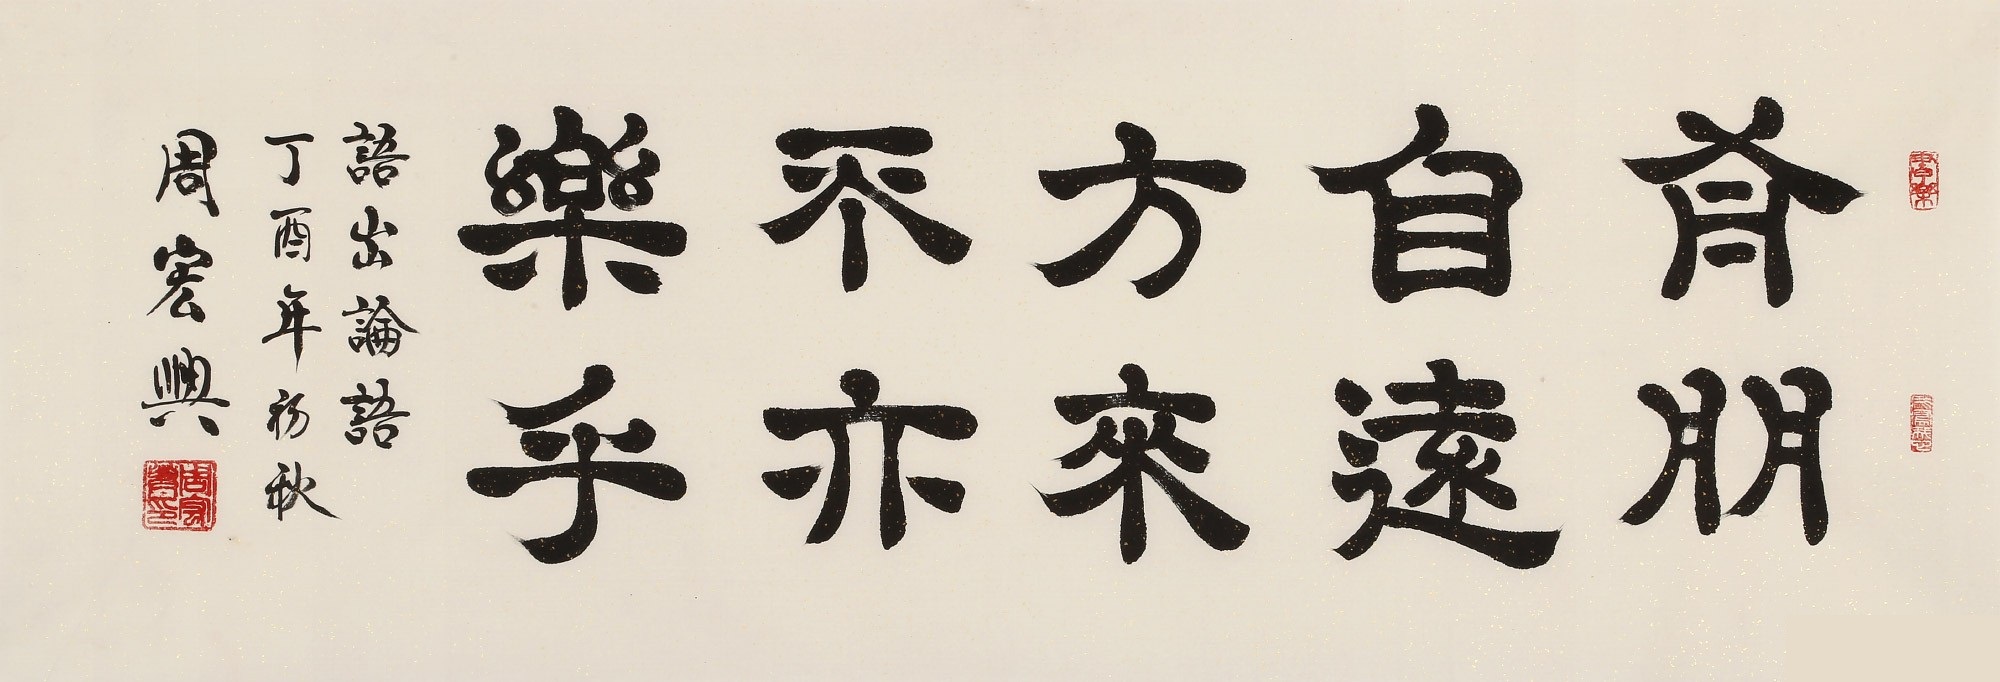 有朋
自遠
方來
不亦
樂乎
語出論語
丁酉年初秋
周宏興